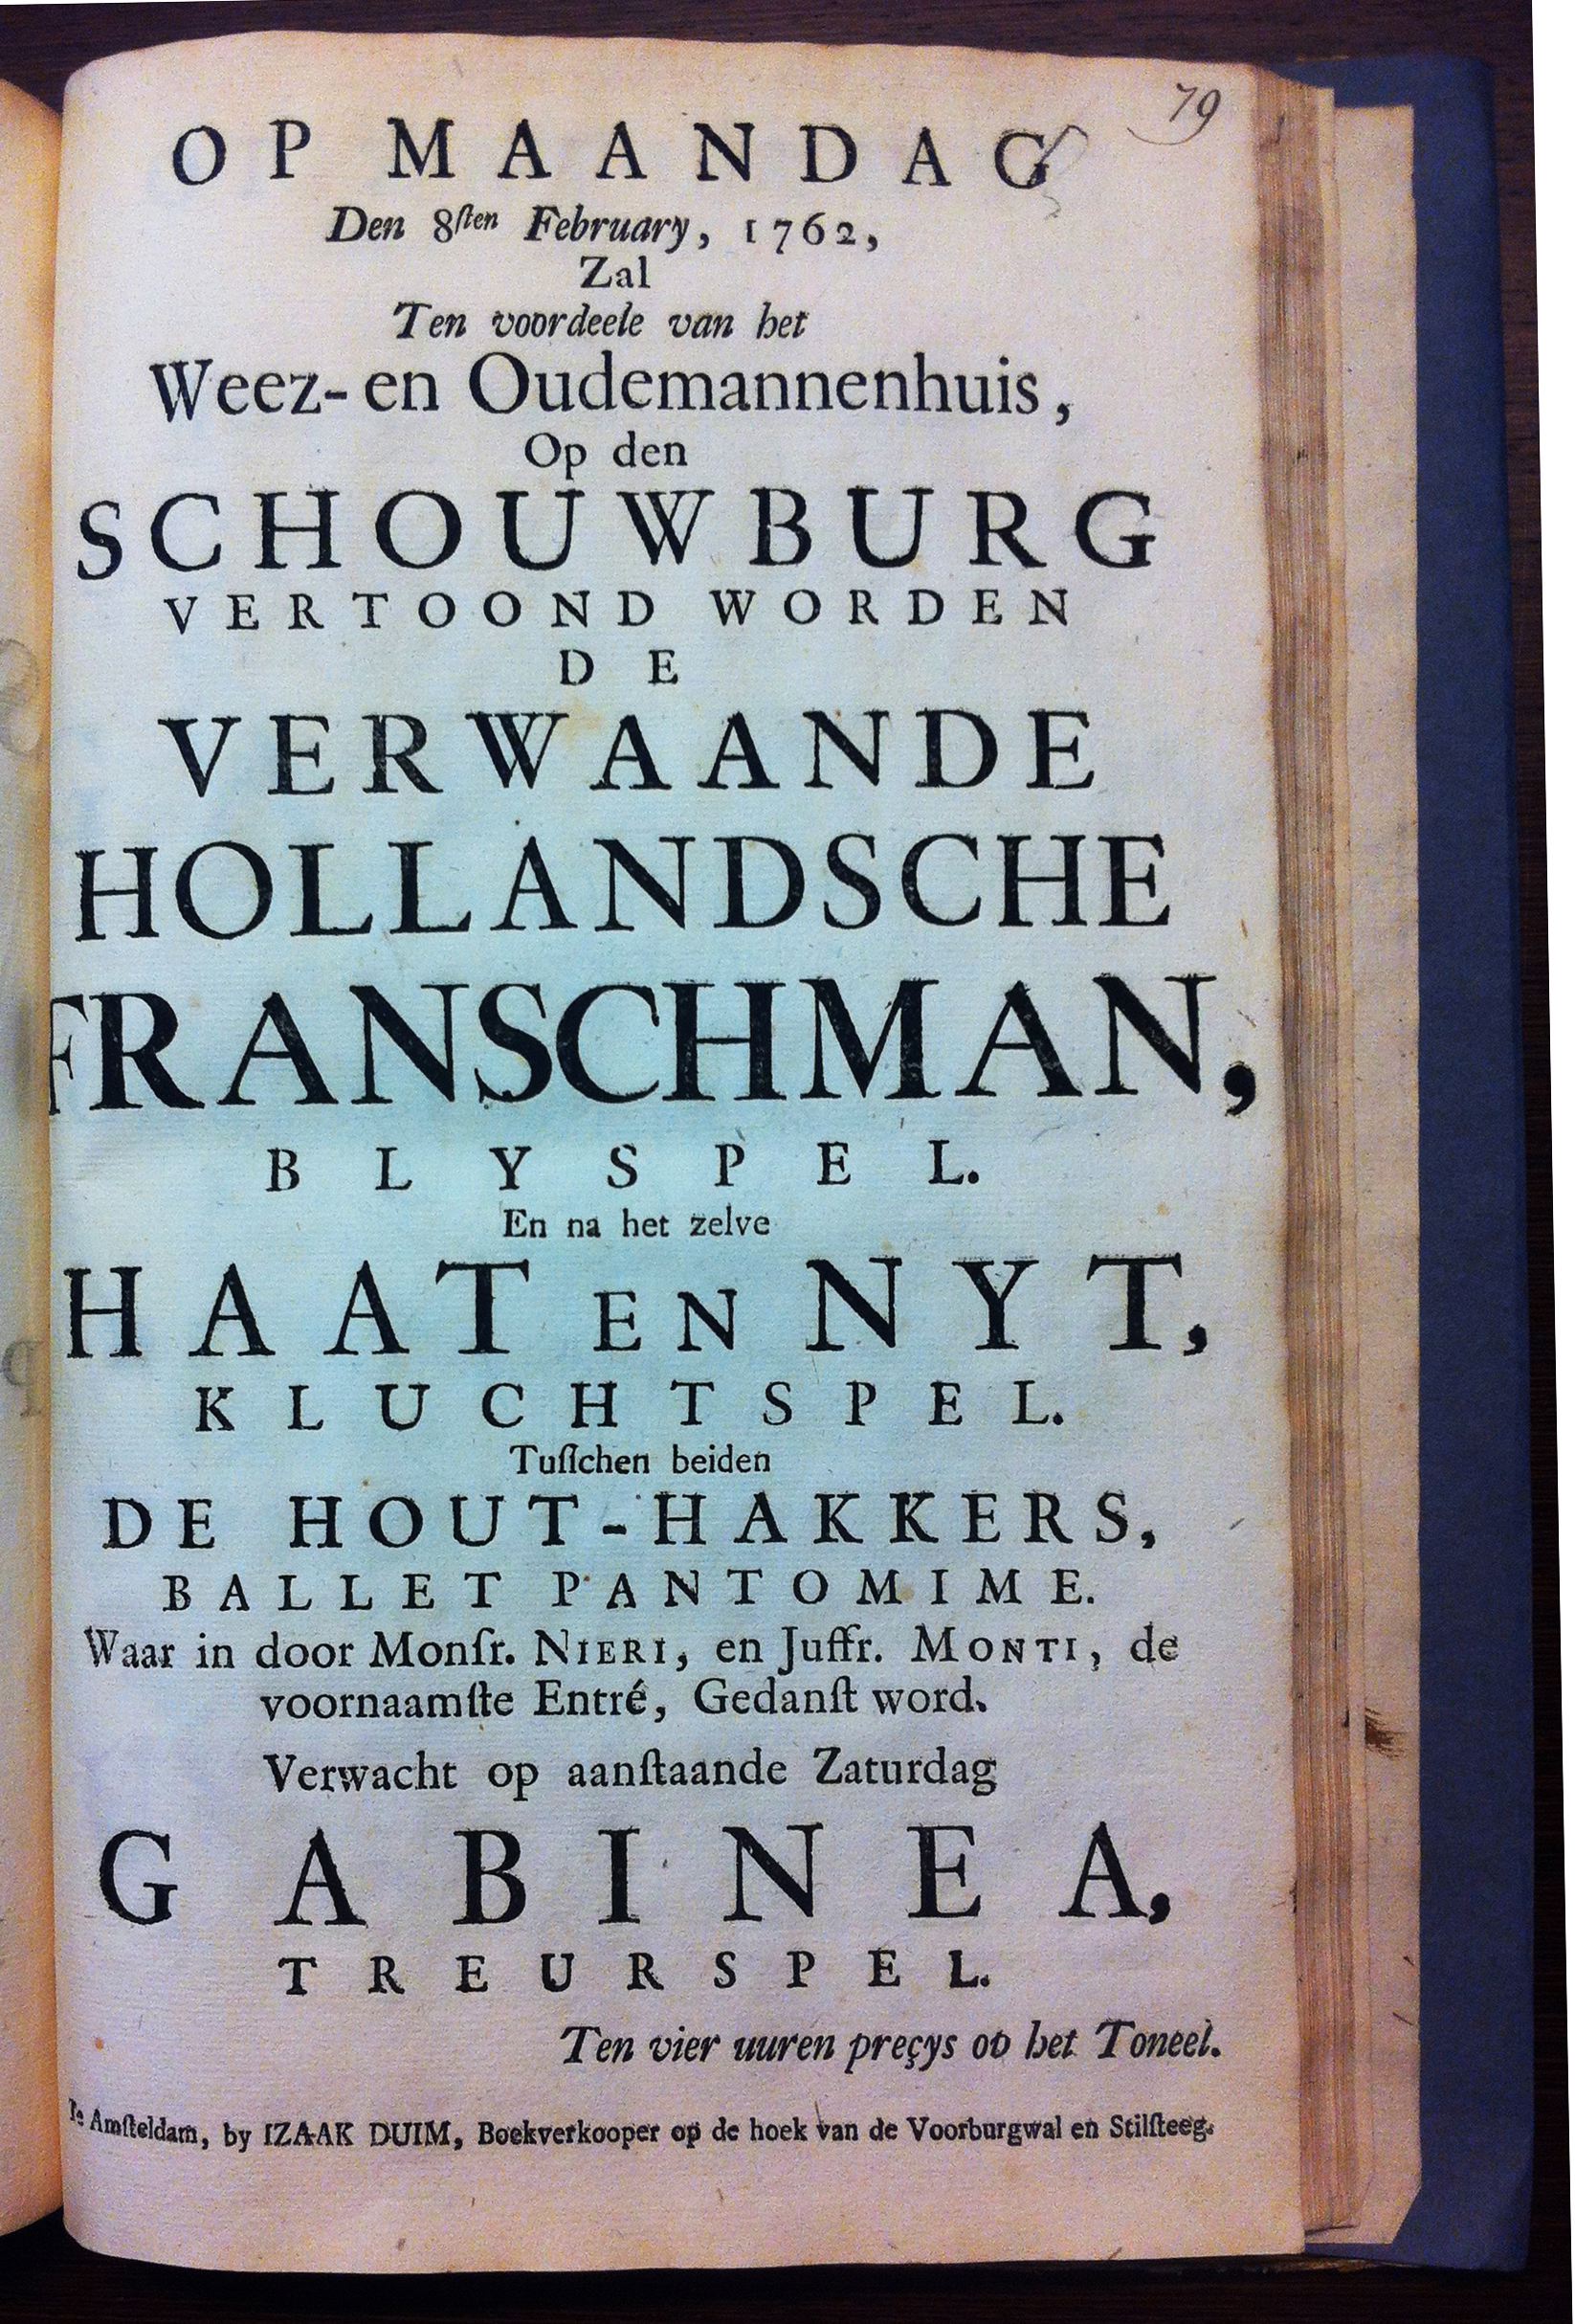 79
OP MAANDAG
Den 8ſten February, 1762,
Zal
Ten voordeele van het
Weez- en Oudemannenhuis,
Op den
SCHOUWBURG
VERTOOND WORDEN
DE
VERWAANDE
HOLLANDSCHE
FRANSCHMAN,
BLYSPEL.
En na het zelve
HAAT EN NYT,
KLUCHTSPEL.
Tuſſchen beiden
DE HOUT-HAKKERS,
BALLET PANTOMIME.
Waar in door Monſr. NIERI, en Juffr. MONTI, de
voornaamſte Entré, Gedanſt word.
Verwacht op aanſtaande Zaturdag
GABINEA,
TREURSPEL.
Ten vier uuren preçys op het Toneel.
Te Amſteldam, by IZAAK DUIM, Boekverkooper op de hoek van de Voorburgwal en Stilſteeg.